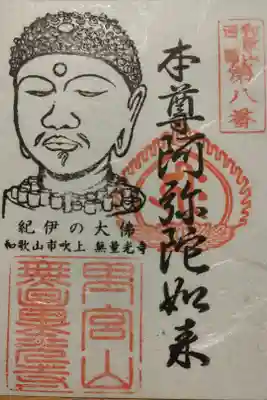 第八番
本尊阿弥陀如来
紀伊の大佛
和歌山市吹上 無量光寺
無量光寺